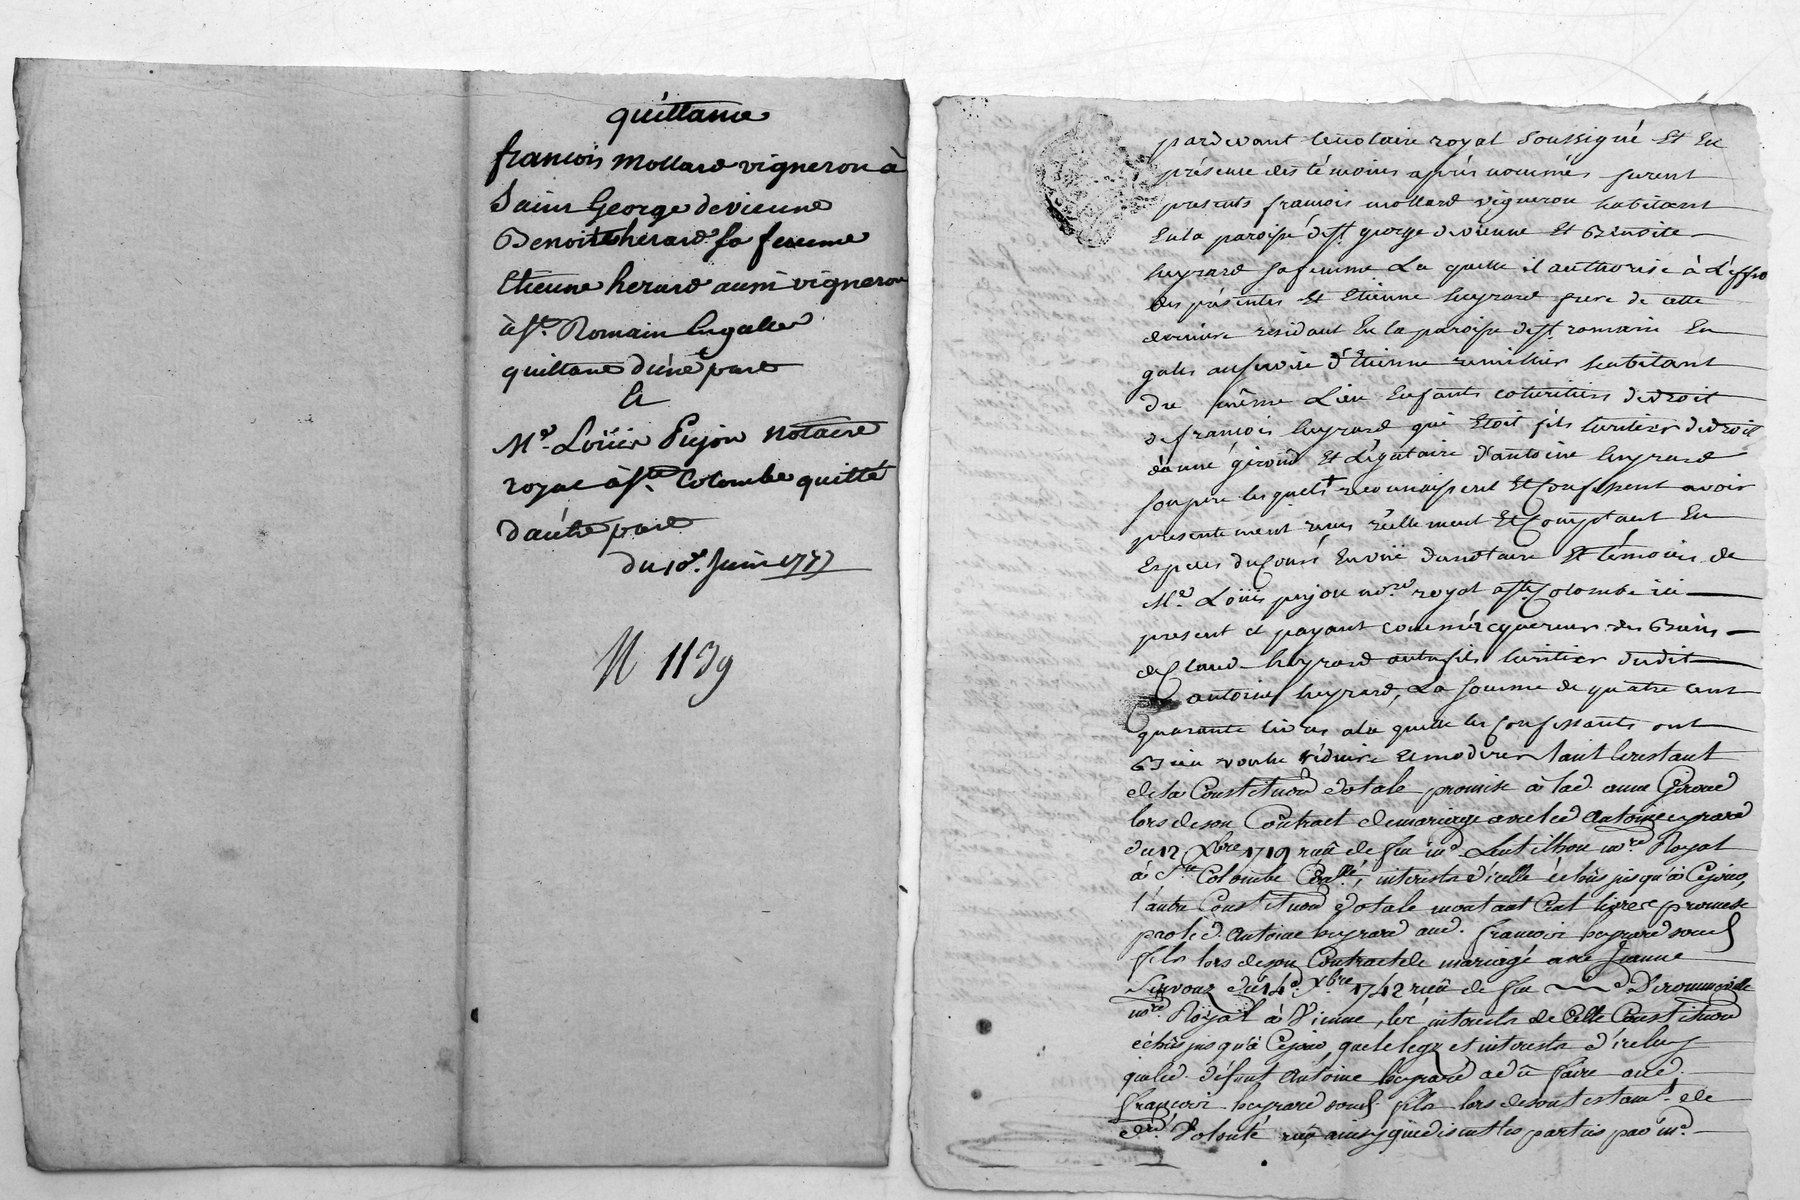 quittance
francois mollard vigneron à
Saint George de vienne
Benoite herard sa femme
Etienne herard aussi vigneron
à st. Romain en galles
quittance d'une part
Et
Mr. Loüis Pujon notaire
royal à ste. Colombe quitté
d'autre part
du 10e. Juin 1777
N 1139
pardevant le notaire royal soussigné Et En
présence des témoins après nommés furent
presents francois mollard vigneron habitant
En la paroisse de st. george de vienne Et Benoite
heyrard sa femme La quelle il authorise à L'effet
des présentes Et Etienne heyrard frere de cette
derniere résidant En la paroisse de st. romain En
gales au service d'Etienne remillier habitant
du même Lieu Enfants coheritiers de droit
de francois heyrard qui Etoit fils heritier de droit
d'anne giroud Et Légataire d'antoine heyrard
son pere lesquels reconnaissent Et Confessent avoir
presentement reçu réellement Et Comptant En
Especes du Cours En vüe du notaire Et témoins de
Mr. Loüis pujon nore. royal à ste. Colombe ici
present et payant comme acquereur des Biens
de Claud heyrard autre fils heritier dudit
antoine heyrard, La somme de quatre cent
quarante livres a la quelle les Confessants ont
Bien voulu réduire Et moderer tant le restant
de la Constitution dotale promise à lad. anne Giroud
lors de son Contract de mariage avec led. Antoine eyrard
du 12 Xbre 1719 reçu de feu me. Lentilhon nre. Royal
à Ste. Colombe, interests d'icelle échûs jusqu'à Cejour,
l'autre Constitution dotale montant Cent livres promise
par led. Antoine heyrard aud. francois heyrard son
fils lors de son Contract de mariage avec Jeanne
du 14e. Xbre 1742 reçu de feu
nre. Royal à Vienne, les interests de Cette Constitution
échûs jusqu'à Cejour, que le legs et interests d'iceluy
que led. défunt Antoine heyrard a dû faire aud.
francois heyrard son fils lors de son testamt. de
dre. Volonté reçu ainsy que disent les parties par me.